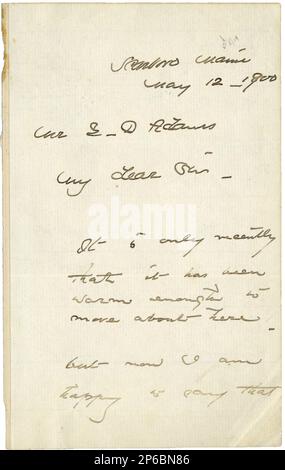 Scarboro Maine
May 12 - 1900
Mr E - D Adams
My Dear Sir -
It is only recently
that it has been
warm enough to
move about here.
but now I am
happy to say that
alamy
Image ID: 2P6BN86
www.alamy.com